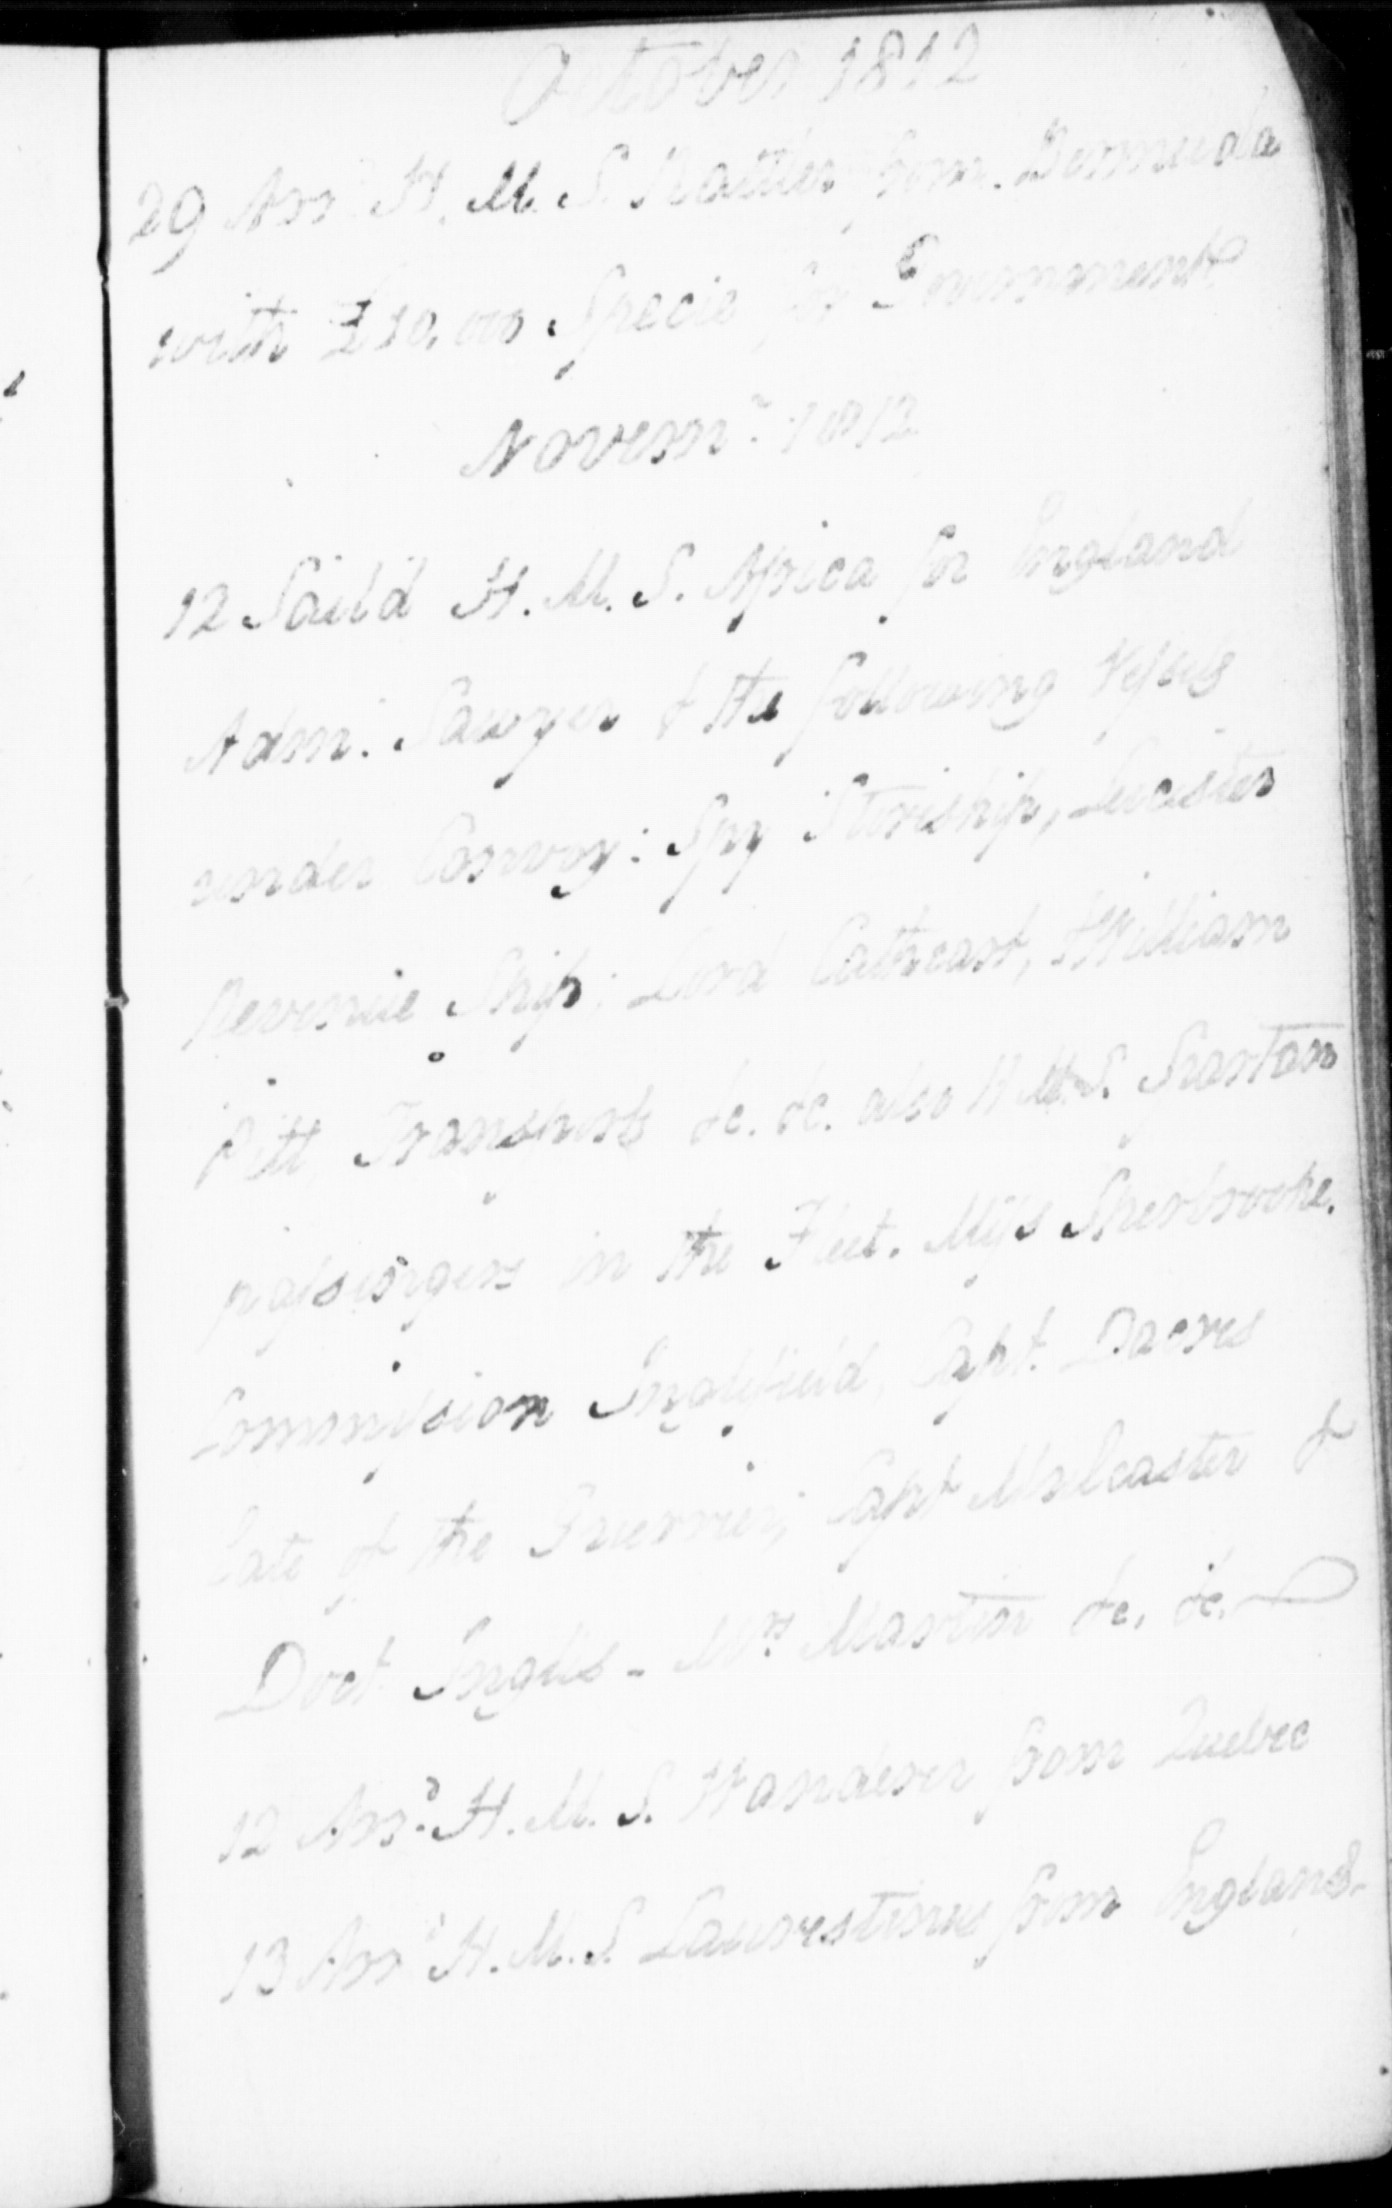 October 1812
29 Arrd. H. M. S. Rattler from Bermuda
with £10,000 Specie for Government
Novemr. 1812
12 Sail'd H. M. S. Africa for England
Adm. Sawyer & the following Vessels
under Convoy: Spy Storeship, Leicister
Revenue Ship; Lord Cathcart, William
Pitt, Transports &c. &c. also H. M. S. Spartan
passengers in the Fleet. Miss Sherbrooke,
Commission Inglefield, Capt. Dacres
late of the Guerrier; Capt Mulcaster &
Doct Inglis - Mrs. Martin &c. &c.
12 Arrd. H. M. S. Wanderer from Quebec
13 Arrd. H. M. S. Laurestinus from England.